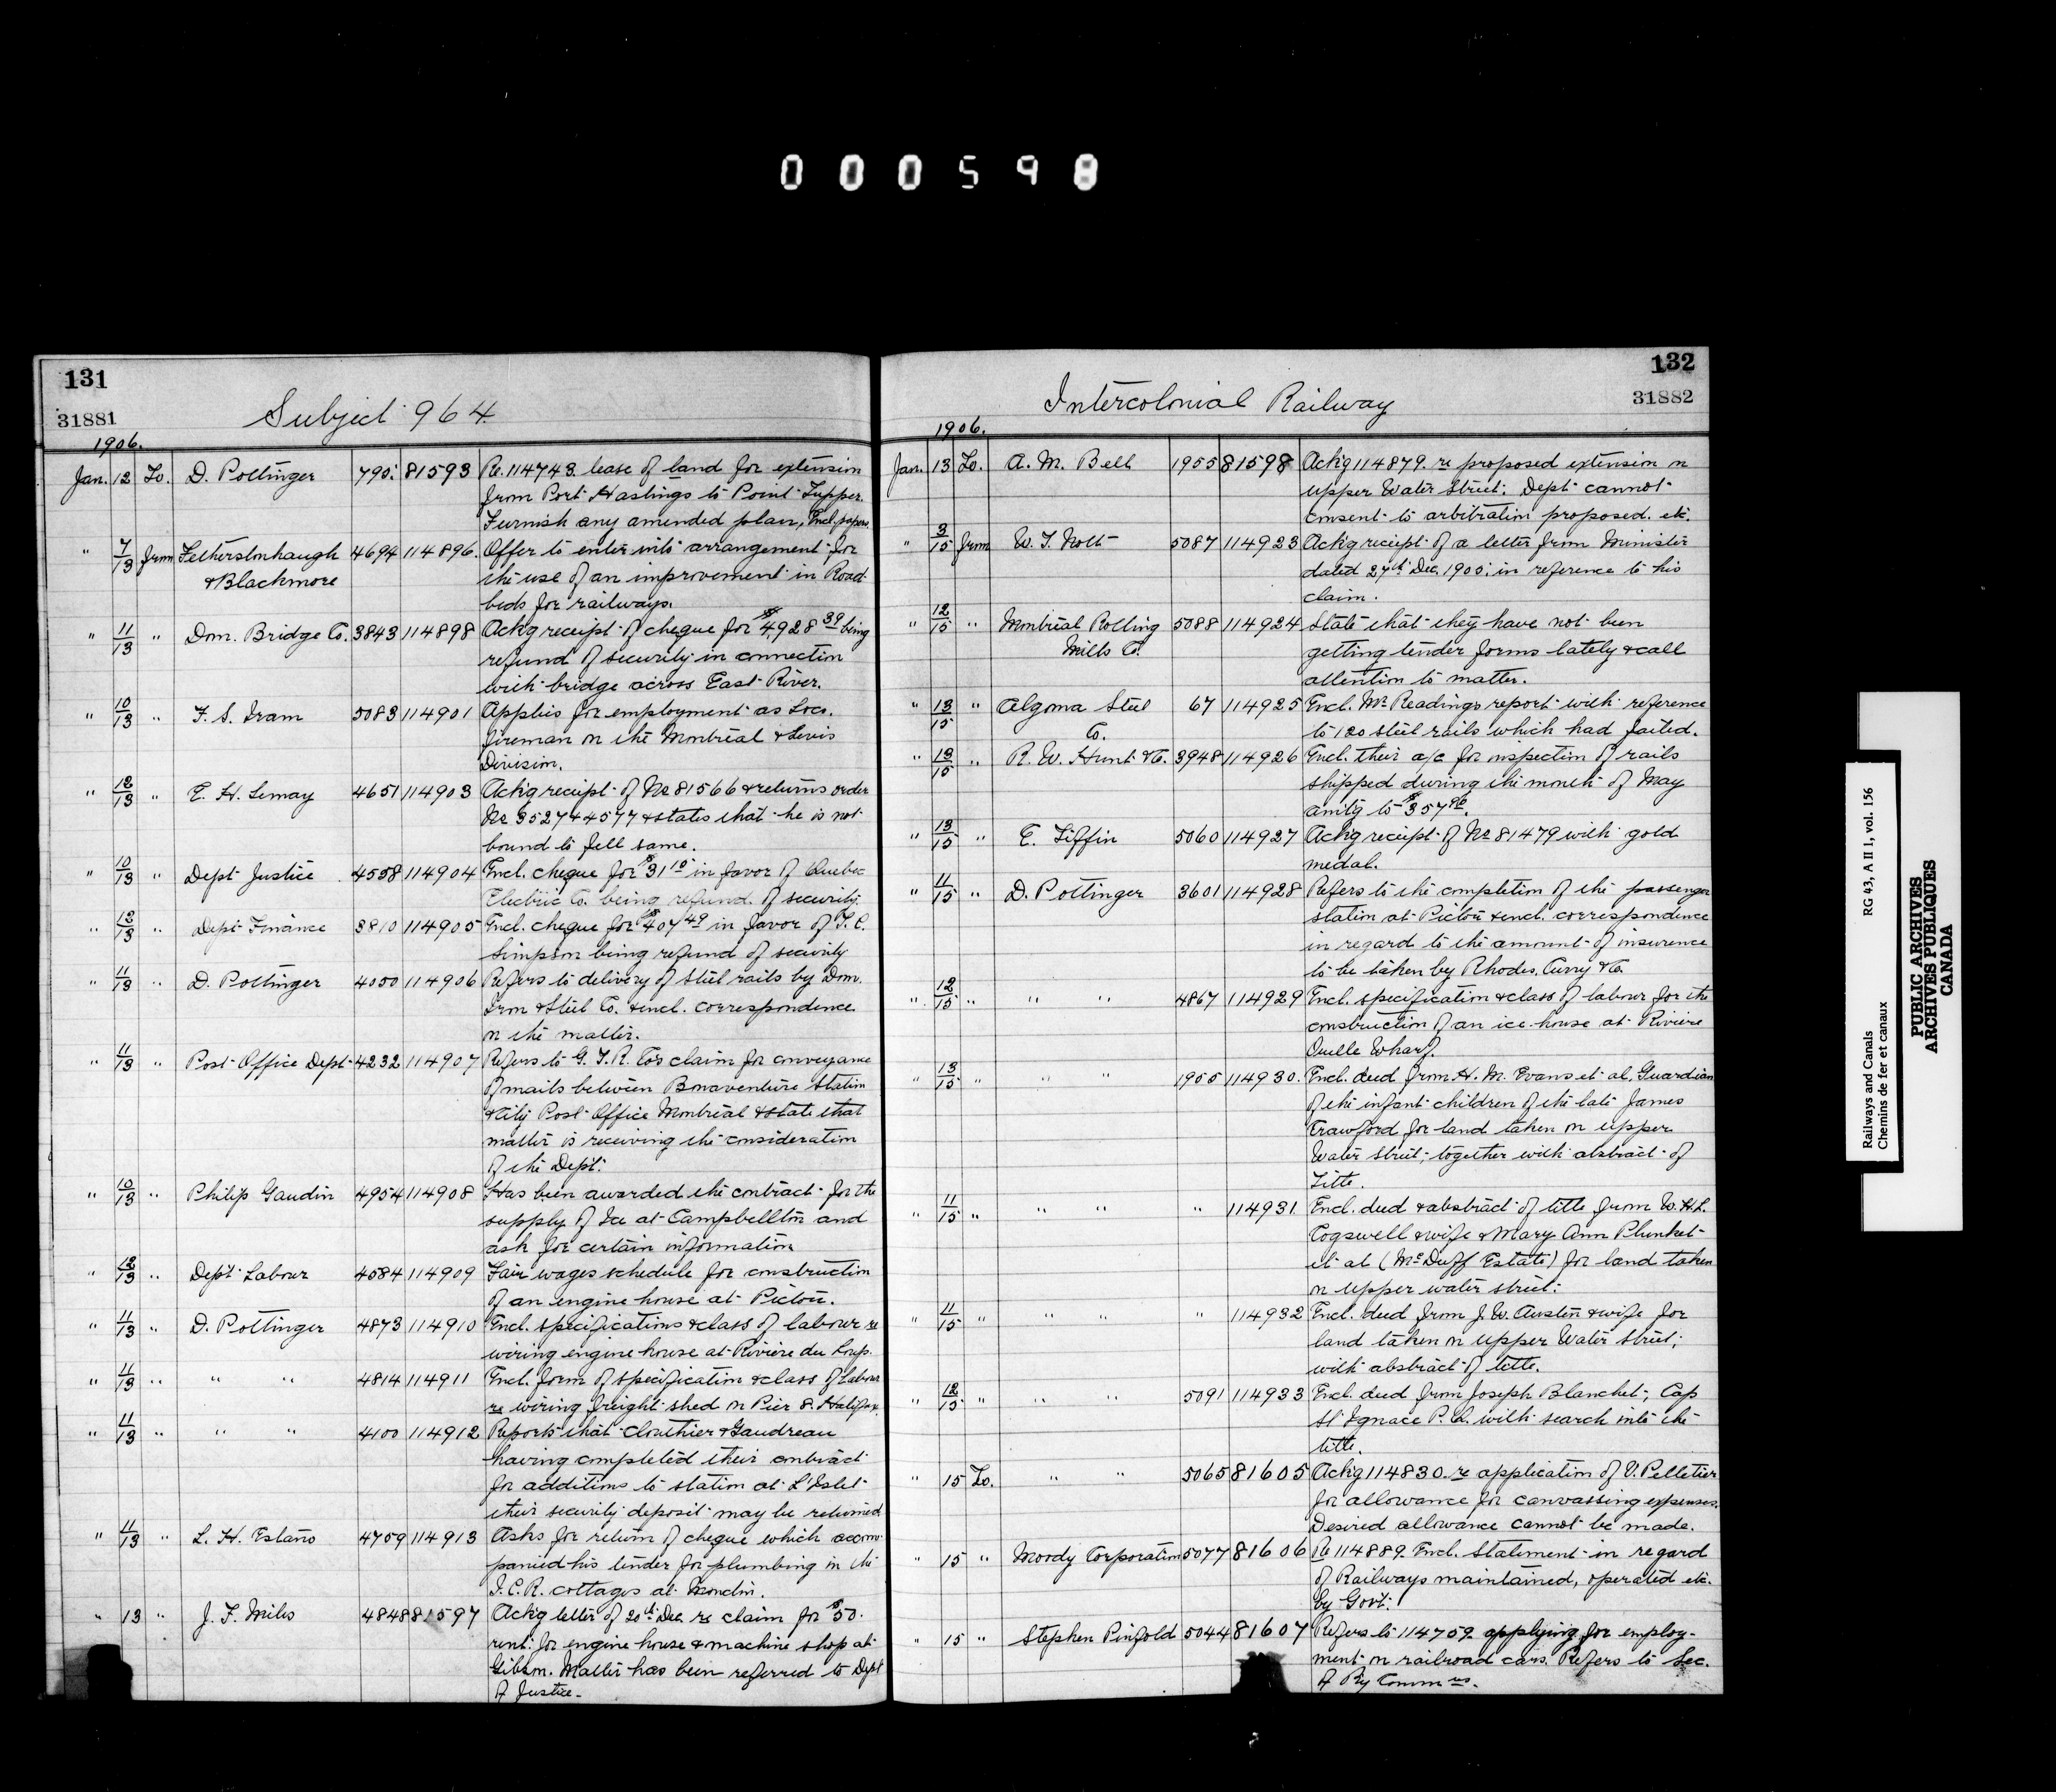 000598
131
31881
Subject 964.
1906.
Jan. 12 To. D. Pottinger 790. 81593 Re. 114743 lease of land for extension
from Port Hastings to Point Tupper.
Furnish any amended plan, Encl. papers
" 7/13 from Fetherstonhaugh 4694 114896. Offer to enter into arrangement for
& Blackmore the use of an improvement in Road
beds for railways.
" 11/13 " Dom. Bridge Co. 3843 114898 Ack'g receipt of cheque for $4,928 39 being
refund of security in connection
with bridge across East River.
" 10/13 " F. S. Iram 5083 114901 Applies for employment as Loco.
fireman on the Montreal & Levis
Division.
" 12/13 " E. H. Lemay 4651 114903 Ack'g receipt of No 81566 & returns order
No 3527 & 4577 & states that he is not
bound to fell same.
" 10/13 " Dept Justice 4558 114904 Encl. cheque for $31 10 in favor of Quebec
Electric Co. being refund of security.
" 12/13 " Dept Finance 3810 114905 Encl. cheque for $407 49 in favor of T. C.
Simpson being refund of security
" 11/13 " D. Pottinger 4050 114906 Refers to delivery of steel rails by Dom.
Iron & Steel Co. & encl. correspondence
on the matter.
" 11/13 " Post Office Dept 4232 114907 Refers to G. T. R. Co's claim for conveyance
of mails between Bonaventure Station
& City Post Office Montreal & state that
matter is receiving the consideration
of the Dept.
" 10/13 " Philip Gaudin 4954 114908 Has been awarded the contract for the
supply of Ice at Campbellton and
ask for certain information
" 12/13 " Dept Labour 4584 114909 Fair wages schedule for construction
of an engine house at Pictou.
" 11/13 " D. Pottinger 4873 114910 Encl. specifications & class of labour re
wiring engine house at Riviere du Loup.
" 11/13 " " " 4814 114911 Encl. form of specification & class of labour
re wiring freight shed on Pier 8. Halifax.
" 11/13 " " " 4100 114912 Reports that Clouthier & Gaudreau
having completed their contract
for additions to station at L'Islet
their security deposit may be returned
" 11/13 " L. H. Estano 4759 114913 Asks for return of cheque which accom-
panied his tender for plumbing in the
I.C.R. cottages at Moncton.
" 13 " J. F. Miles 4848 81597 Ack'g letter of 20th Dec. re claim for $50.
rent. for engine house & machine shop at
Gibson. Matter has been referred to Dept
of Justice.
132
31882
Intercolonial Railway
1906.
Jan. 13 To. A. M. Bell 1955 81598 Ack'g 114879. re proposed extension on
upper Water Street. Dept cannot
consent to arbitration proposed. etc.
" 3/15 from W. T. Nolt 5087 114923 Ack'g receipt of a letter from Minister
dated 27th Dec. 1905. in reference to his
claim.
" 12/15 " Montreal Rolling 5088 114924 State that they have not been
Mills Co. getting tender forms lately & call
attention to matter.
" 13/15 " Algoma Steel 67 114925 Encl. Mr Readings report with reference
Co. to 120 steel rails which had failed.
" 13/15 " R. W. Hunt & Co. 3948 114926 Encl. their a/c for inspection of rails
shipped during the month of May
amt'g to $357 96.
" 13/15 " E. Tiffin 5060 114927 Ack'g receipt of No 81479 with gold
medal.
" 11/15 " D. Pottinger 3601 114928 Refers to the completion of the passenger
station at Pictou & encl. correspondence
in regard to the amount of insurence
to be taken by Rhodes, Curry & Co.
" 12/15 " " " 4867 114929 Encl. specification & class of labour for the
construction of an ice house at Riviere
Ouelle Wharf.
" 13/15 " " " 1955 114930. Encl. deed from H. M. Evans et al. Guardian
of the infant children of the late James
Crawford for land taken on upper
Water Street; together with abstract of
Title.
" 11/15 " " " " 114931 Encl. deed & abstract of title from W. H. L.
Cogswell & wife & Mary Ann Plunket
et al (McDuff Estate) for land taken
on upper water street.
" 11/15 " " " " 114932 Encl. deed from J. W. Austin & wife for
land taken on upper Water Street;
with abstract of title.
" 12/15 " " " 5091 114933 Encl. deed from Joseph Blanchet; Cap
St Ignace P. Q. with search into the
title.
" 15 To. " " 5065 81605 Ack'g 114830. re application of V. Pelletier
for allowance for canvassing expenses.
Desired allowance cannot be made.
" 15 " Moody Corporation 5077 81606 Re 114889. Encl. statement in regard
of Railways maintained, operated etc.
by Govt.
" 15 " Stephen Pinfold 5044 81607 Refers to 114759. applying for employ-
ment on railroad cars. Refers to Sec.
of Ry Commrs.
Railways and Canals RG 43, A II 1, vol. 156
Chemins de fer et canaux
PUBLIC ARCHIVES
ARCHIVES PUBLIQUES
CANADA